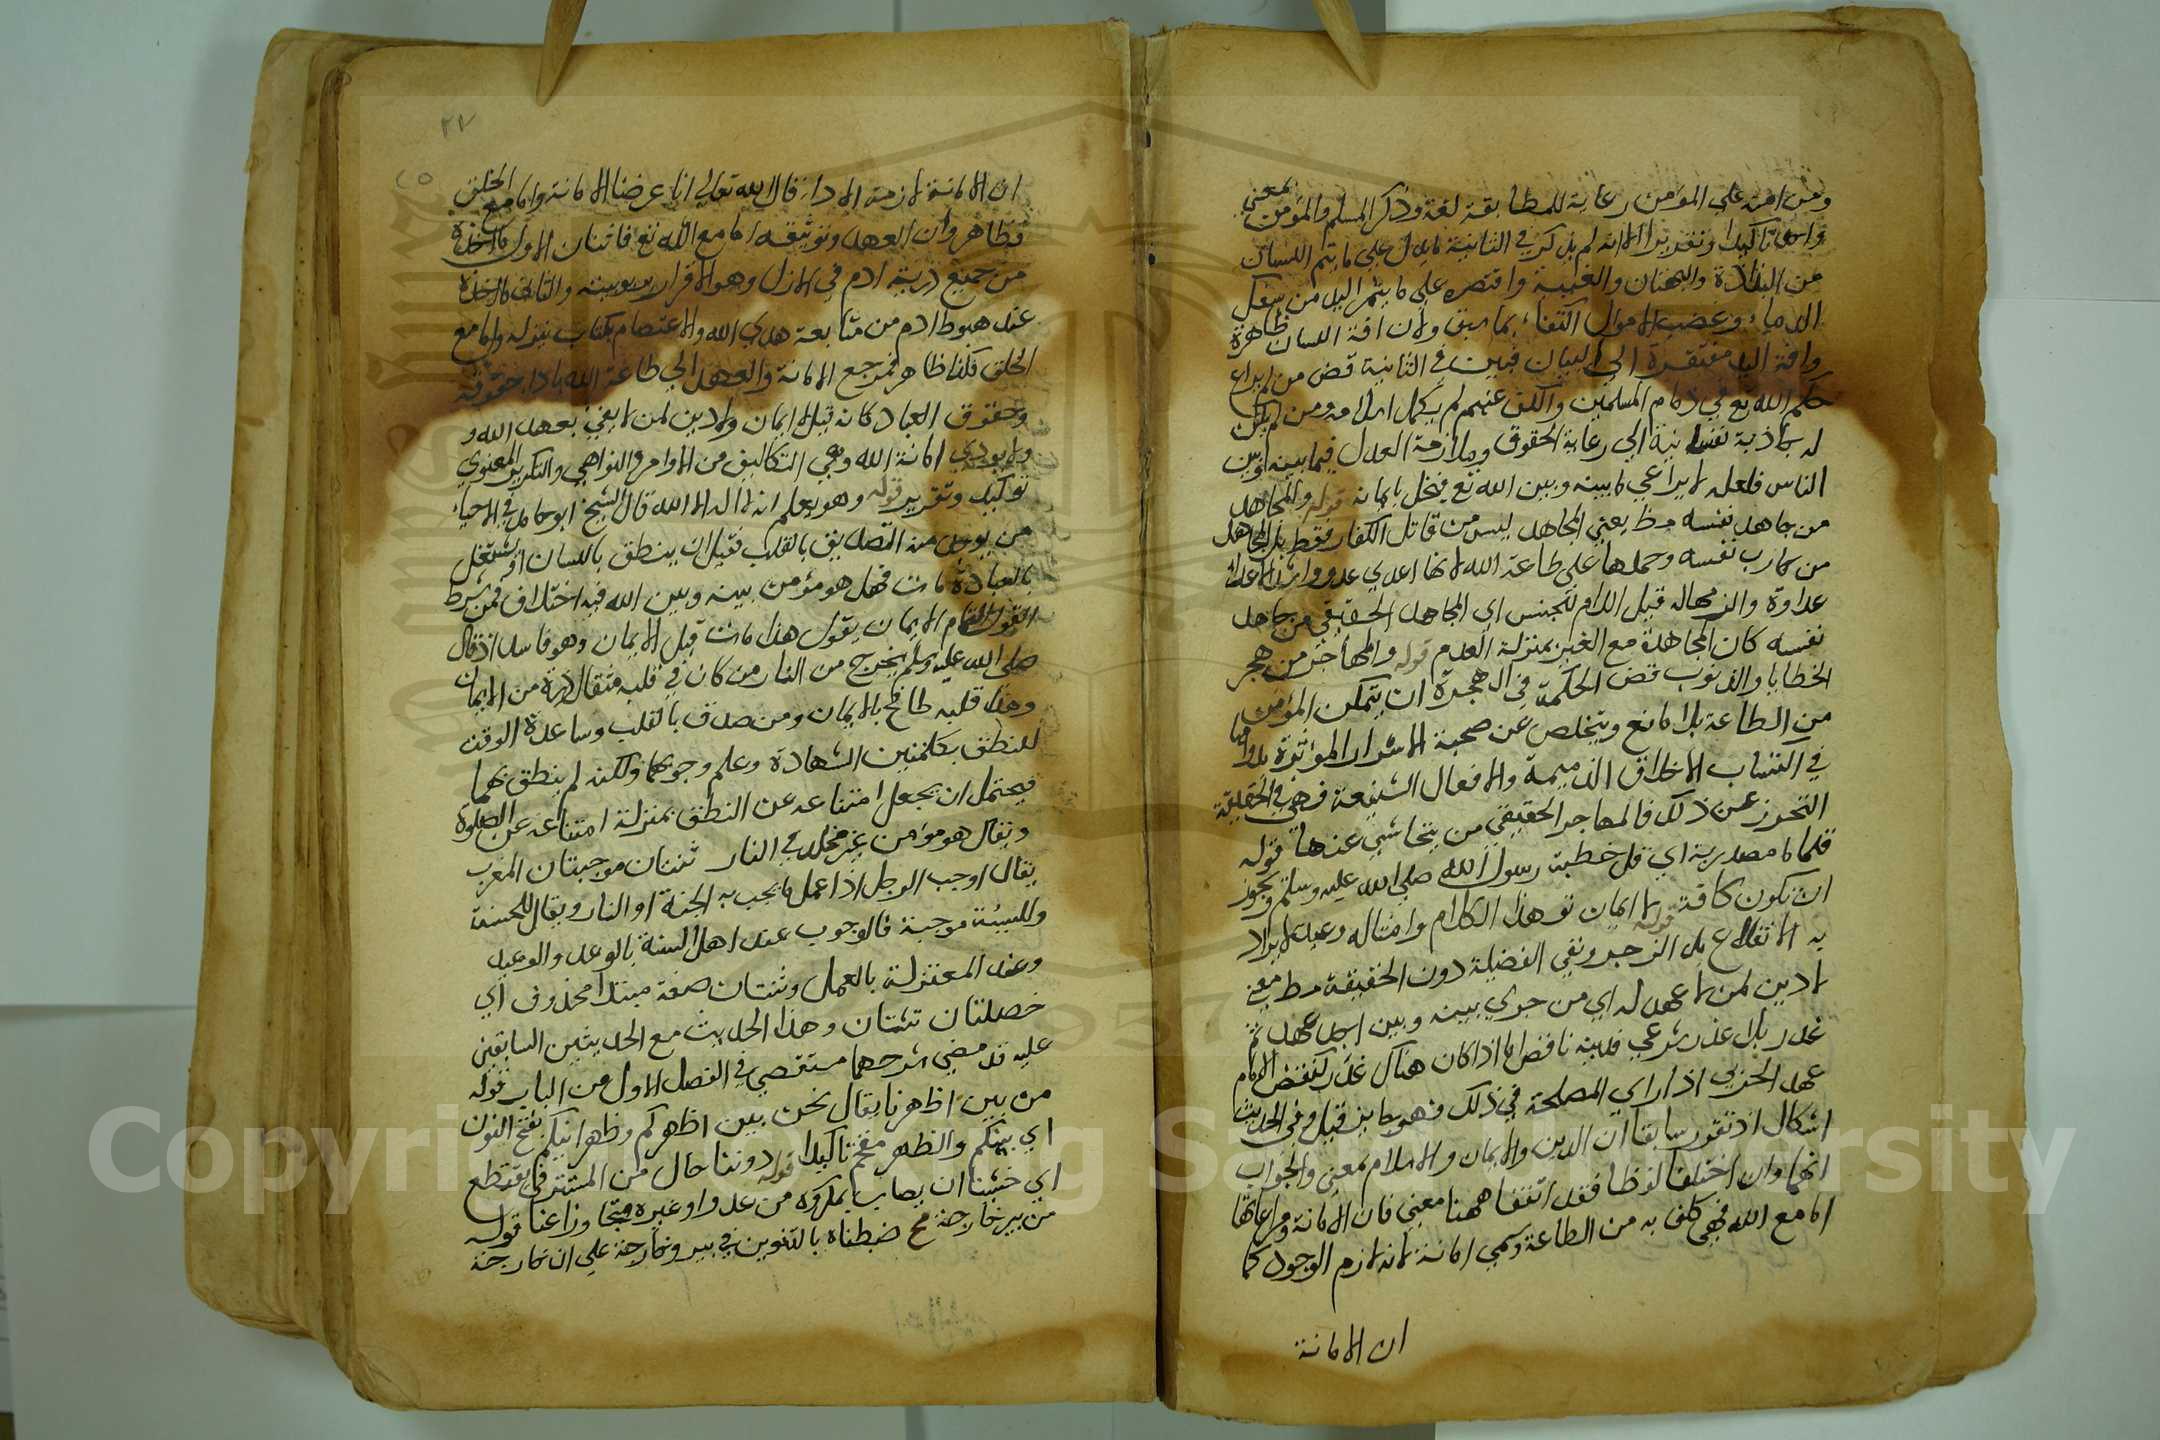 ومن امنه علي المؤمن رعاية للمطابقة لغة وذكر المسلم والمؤمن بمعني
واحد تاكيدا وتقريرا الا انه لم يذكر في الثانية ما يدل علي ما يتم اللسان
من البذاذة والبهتان والغيبة واقتصر علي ما يثمر اليد من سفك
الدماء وغصب الاموال اكتفاء بما سبق ولان افة اللسان ظاهرة
وافة اليد مفتقرة الي البيان فبين في الثانية قض من لم يراع
حكم الله تع في ذمام المسلمين والكف عنهم لم يكمل اسلامه ومن لم يكن
له جاذبة نفسانية الي رعاية الحقوق وملازمة العدل فيما بينه وبين
الناس فلعله لا يراعي ما بينه وبين الله تع فيخل بايمانه قوله والمجاهد
من جاهد نفسه مظ يعني المجاهد ليس من قاتل الكفار فقط بل المجاهد
من حارب نفسه وحملها علي طاعة الله لانها اعدي عدو واشد الاعداء
عداوة والزمهاله قيل اللام للجنس اي المجاهد الحقيقي من جاهد
نفسه كان المجاهدة مع الغير بمنزلة العدم قوله والمهاجر من هجر
الخطايا والذنوب قض الحكمة في الهجرة ان يتمكن المؤمن
من الطاعة بلا مانع ويتخلص عن صحبة الاشرار المؤثرة بدوامها
في اكتساب الاخلاق الذميمة والافعال الشنيعة فهي في الحقيقة
التحرز عن ذلك فالمهاجر الحقيقي من يتحاشي عنها قوله
قلما ما مصدرية اي قل خطبة رسول الله صلي الله عليه وسلم ويجوز
ان تكون كافة قوله لا ايمان تو هذا الكلام وامثاله وعيد لا يراد
به الانقلاع بل الزجر ونفي الفضيلة دون الحقيقة مظ معني
لا دين لمن لا عهد له اي من جري بينه وبين احد عهد ثم
غدر بلا عذر شرعي فدينه ناقص اما اذا كان هناك عذر كنقض الامام
عهد الحربي اذا راي المصلحة في ذلك فهو جايز قيل وفي الحديث
اشكال اذ تقرر سابقا ان الدين والايمان والاسلام بمعني والجواب
انهما وان اختلفا لفظا فقد اتفقا ههنا معني فان الامانة ومراعاتها
اما مع الله فهي كلف به من الطاعة وسمي امانة لانه لازم الوجود كما
ان الامانة
٢٧
ان الامانة لازمة الاداء قال الله تعالي انا عرضنا الامانة واما مع الخلق
فظاهر وان العهد وتوثيقه اما مع الله تع فاثنان الاول ما اخذه
من جميع ذرية ادم في الازل وهو الاقرار بربوبيته والثاني ما اخذه
عند هبوط ادم من متابعة هدي الله والاعتصام بكتاب ينزله واما مع
الخلق فكذا ظاهر فمرجع الامانة والعهد الي طاعة الله باداء حقوقه
وحقوق العباد كانه قيل لا ايمان ولا دين لمن لا يفي بعهد الله و
ولا يودي امانة الله وهي التكاليف من الاوامر والنواهي والتكرير المعنوي
توكيد وتقرير قوله وهو يعلم انه لا اله الا الله قال الشيخ ابو حامد في الاحياء
من يوجد منه التصديق بالقلب فقبل ان ينطق باللسان او يشتغل
بالعبادة مات فهل هو مؤمن بينه وبين الله فيه اختلاف فمن شرط
القول لتمام الايمان يقول هذا مات قبل الايمان وهو فاسد اذ قال
صلي الله عليه وسلم يخرج من النار من كان في قلبه مثقال ذرة من الايمان
وهذا قلبه طافح بالايمان ومن صدق بالقلب وساعده الوقت
للنطق بكلمتين الشهادة وعلم وجوبهما ولكنه لم ينطق بهما
فيحتمل ان يجعل امتناعه عن النطق بمنزلة امتناعه عن الصلوة
ويقال هو مومن غير مخلد في النار ثنتان موجبتان المغرب
يقال اوجب الرجل اذا عمل ما يجب به الجنة او النار ويقال للحسنة
وللسيئة موجبة فالوجوب عند اهل السنة بالوعد والوعيد
وعند المعتزلة بالعمل وثنتان صفة مبتدا محذوف اي
خصلتان ثنتان وهذا الحديث مع الحديثين السابقين
عليه قد مضي شرحهما مستقصي في الفصل الاول من الباب قوله
من بين اظهرنا يقال نحن بين اظهركم وظهرانيكم بفتح النون
اي بينكم والظهر مقحم تاكيدا قوله دوننا حال من المستتر في يقتطع
اي خشينا ان يصاب بمكروه من عدو او غيره متجاوزا عنا قوله
من بير خارجة مح ضبطناه بالتنوين في بير وخارجة علي ان خارجة
Copyright © King Saud University
1957